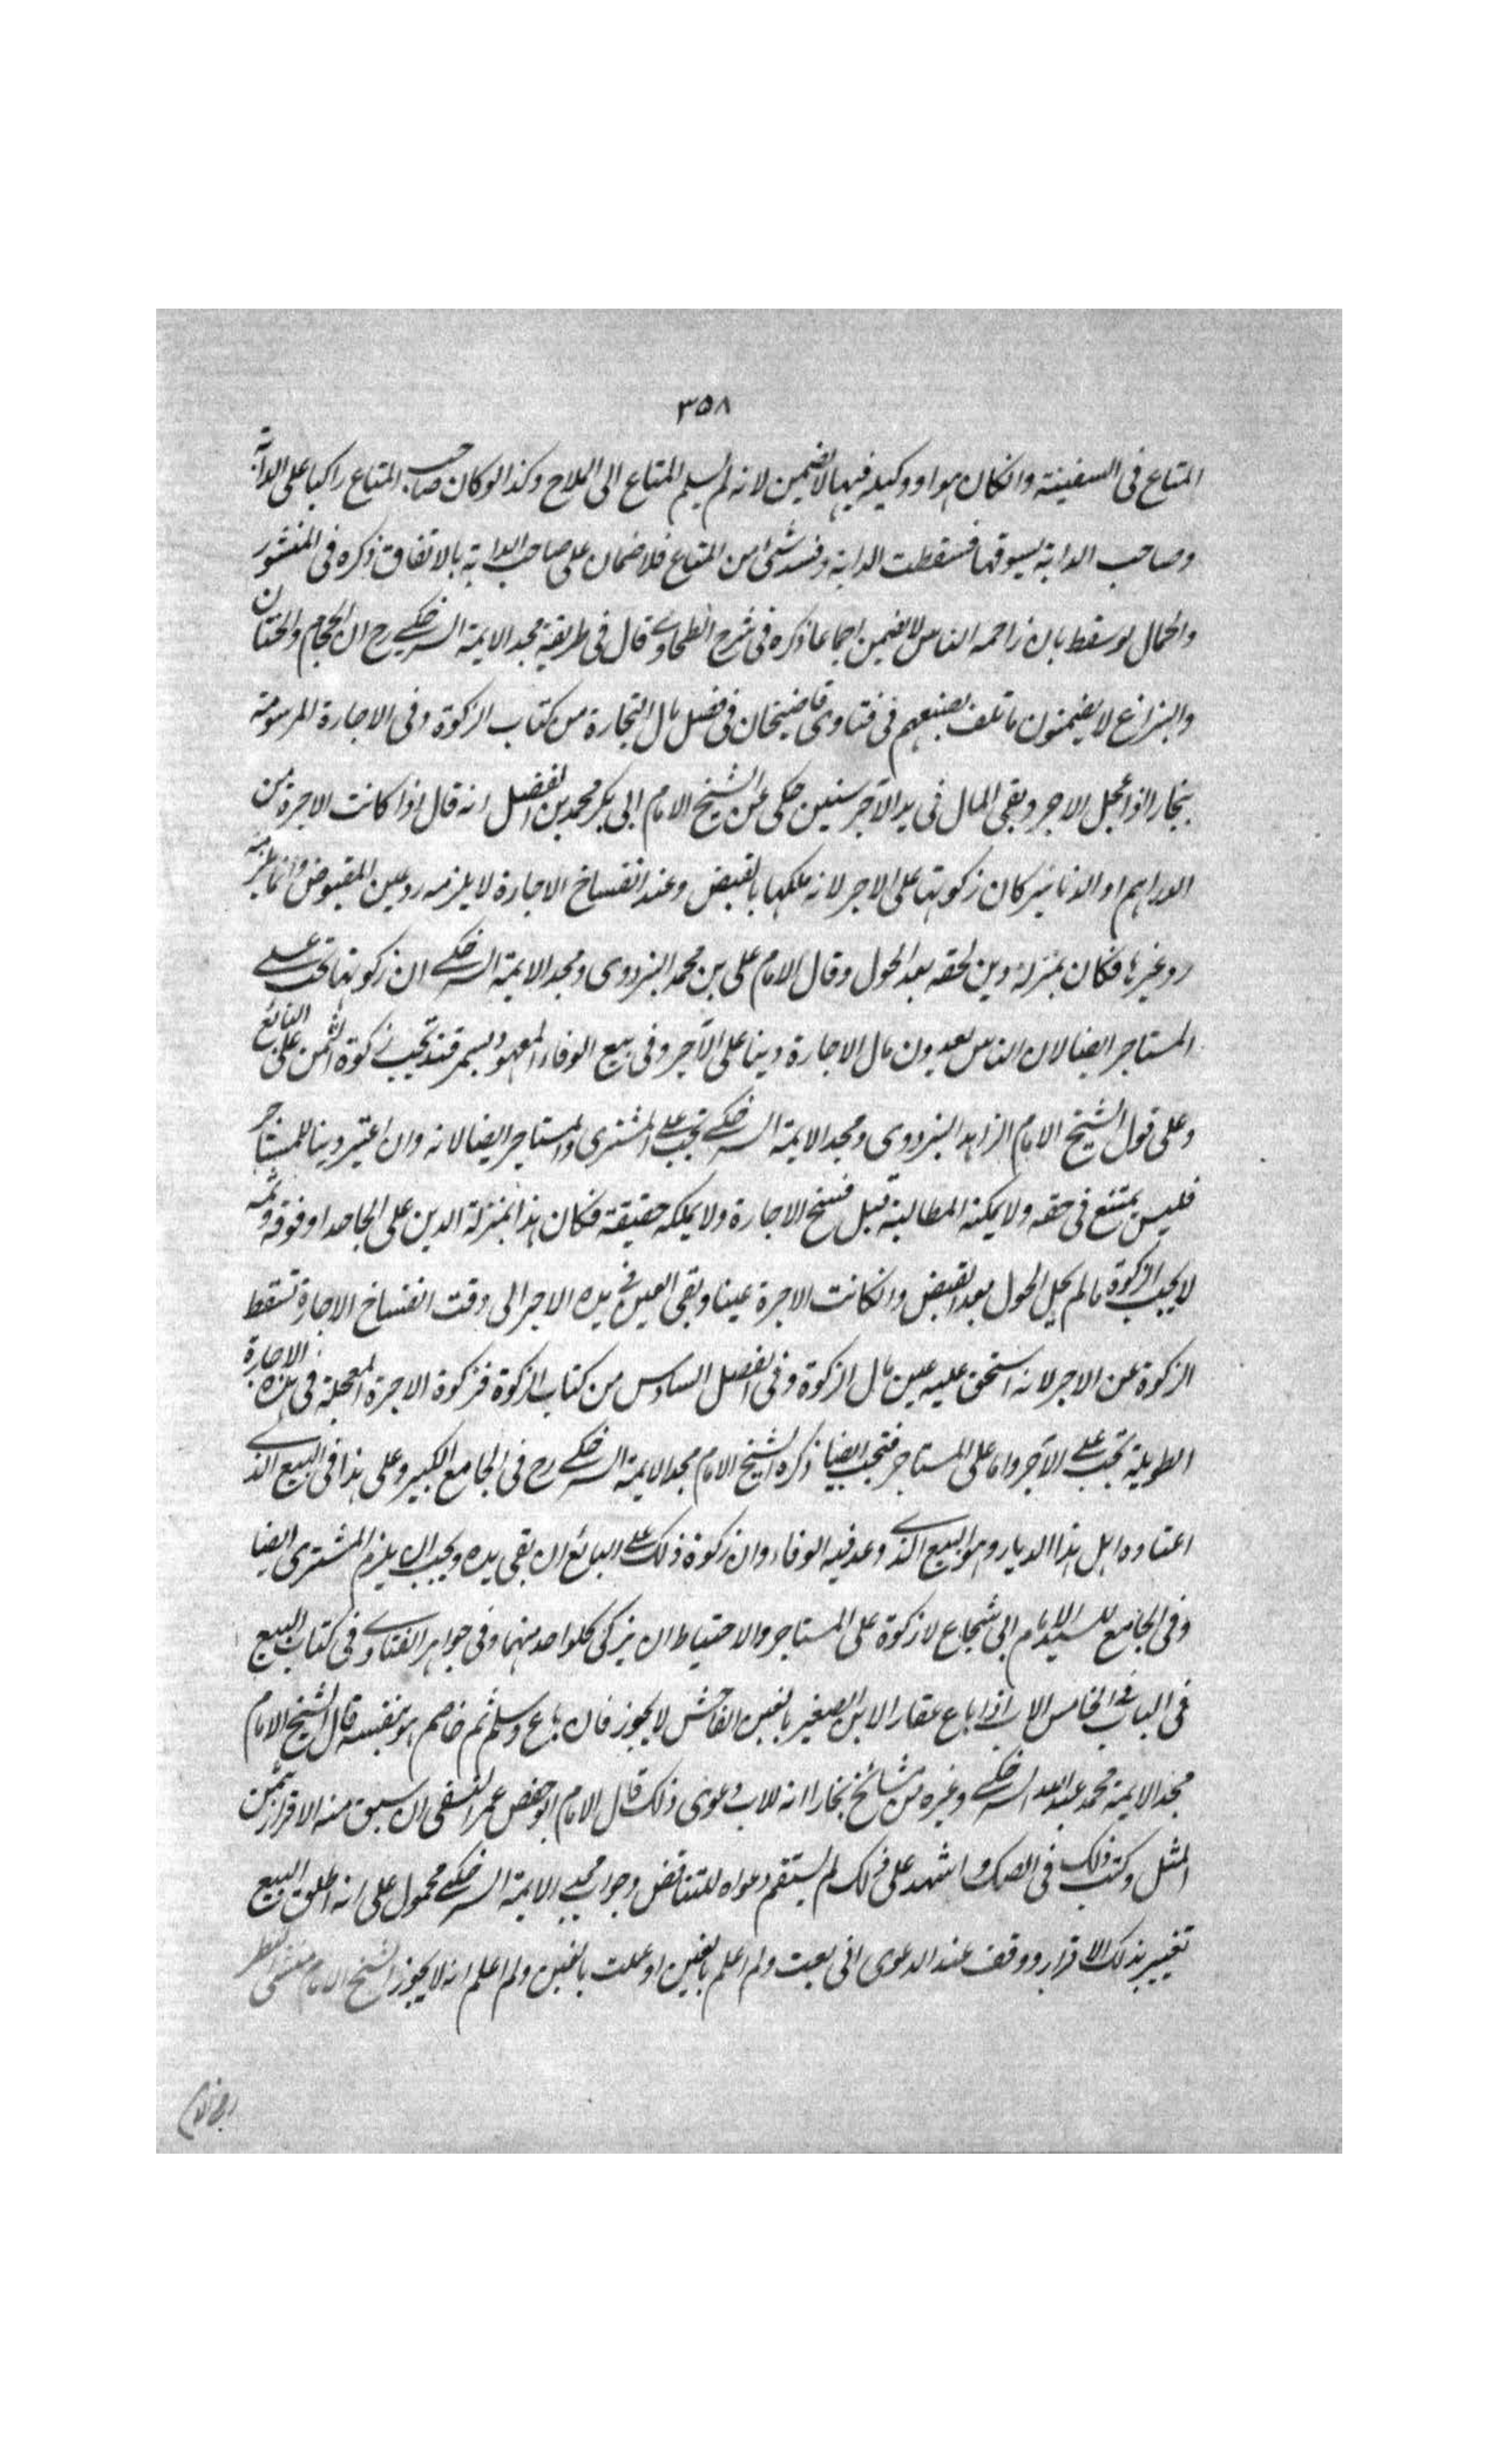 ٣٥٨
المتاع فى السفينة وانكان هو او وكيله فيها لا يضمن لانه لم يسلم المتاع الى الملاح وكذا لو كان صاحب المتاع راكبا على الدابة
وصاحب الدابة يسوقها فسقطت الدابة وفسد شئ من المتاع فلا ضمان على صاحب الدابة بالاتفاق ذكره فى المنشور
والحمال لو سقط بان زاحمه الناس لا يضمن اجماعا ذكره فى شرح الطحاوى قال فى طريقية مجد الايمة السرخكى رح ان الحجام والختان
والبزاغ لا يضمنون ما تلف بصنعهم فى فتاوى قاضيخان فى فصل مال التجارة من كتاب الزكوة وفى الاجارة المرسومة
ببخارا اذا عجل الاجر وبقى المال فى يد الآجر سنين حكى عن الشيخ الامام ابى بكر محمد بن الفضل انه قال اذا كانت الاجرة من
الدراهم او الدنانير كان زكوتها على الاجر لانه ملكها بالقبض وعند انفساخ الاجارة لا يلزمه رد عين المقبوض وانما يلزمه
رد غيرها فكان بمنزلة دين لحقه بعد الحول وقال الامام على بن محمد البزدوى ومجد الايمة السرخكى ان زكوتها تجب على
المستاجر ايضا لان الناس يعدون مال الاجارة دينا على الآجر وفى بيع الوفاء المعهود بسمرقند تجب زكوة الثمن على البائع
وعلى قول الشيخ الامام الزاهد البزدوى ومجد الايمة السرخكى تجب على المشترى والمستاجر ايضا لانه وان اعتبر دينا للمستاجر
فليس بمنتفع فى حقه ولا يمكنه المطالبة قبل فسخ الاجارة ولا يملكه حقيقة فكان هذا بمنزلة الدين على الجاحد او فوقه وثمه
لا يجب الزكوة ما لم يحل الحول بعد القبض وانكانت الاجرة عينا وبقى العين فى يده الاجر الى وقت انفساخ الاجارة تسقط
الزكوة عن الاجر لانه استحق عليه عين مال الزكوة وفى الفصل السادس من كتاب الزكوة فزكوة الاجرة المعجلة فى هذه الاجارة
الطويلة تجب على الآجر واما على المستاجر فتجب ايضا ذكره الشيخ الامام مجد الايمة السرخكى رح فى الجامع الكبير وعلى هذا فى البيع الذى
اعتاده اهل هذا الديار وهو البيع الذى وعد فيه الوفاء وان زكوة ذلك على البائع ان بقى يده ويجب ان يلزم المشترى ايضا
وفى الجامع للسيد الامام ابى شجاع لا زكوة على المستاجر والاحتياط ان يزكى كلواحد منهما وفى جواهر الفتاوى فى كتاب البيع
فى الباب الخامس الاب اذا باع عقار الابن الصغير بالغبن الفاحش لا يجوز فان باع وسلم ثم خاصم هو بنفسه قال الشيخ الامام
مجد الايمة محمد عبد الله السرخكى وغيره من مشائخ بخارا انه للاب دعوى ذلك قال الامام ابو حفص عمر النسفى ان سبق منه الاقرار بثمن
المثل وكتب ذلك فى الصك واشهد على ذلك لم يستقم دعواه للتناقض وجواب مجد الايمة السرخكى محمول على انه اطلق البيع
بغير ذلك الاقرار ووقف عند الدعوى انى بعت ولم اعلم بالغبن او علمت بالغبن ولم اعلم انه لا يجوز الشيخ الامام